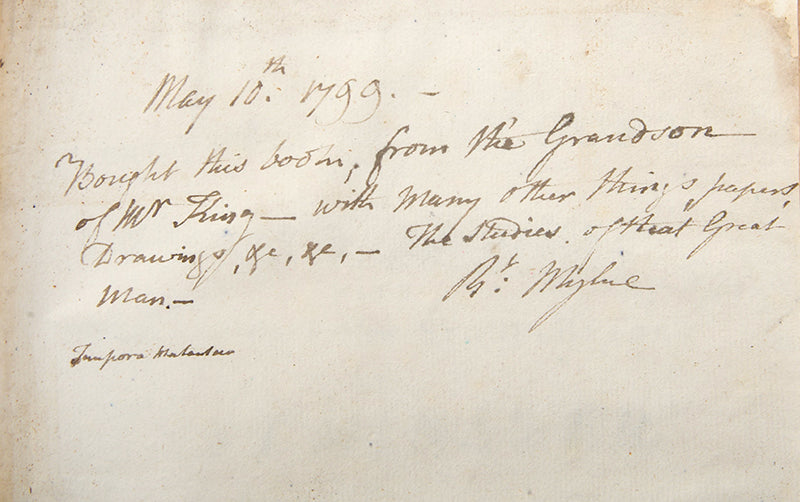 May 10.th 1799. —
Bought this book, from the Grandson
of Mr King — with Many other things, papers,
Drawings, &c, &c, — The Studies of that Great
Man. —
Rt: Mylne
Tempora Mutantur